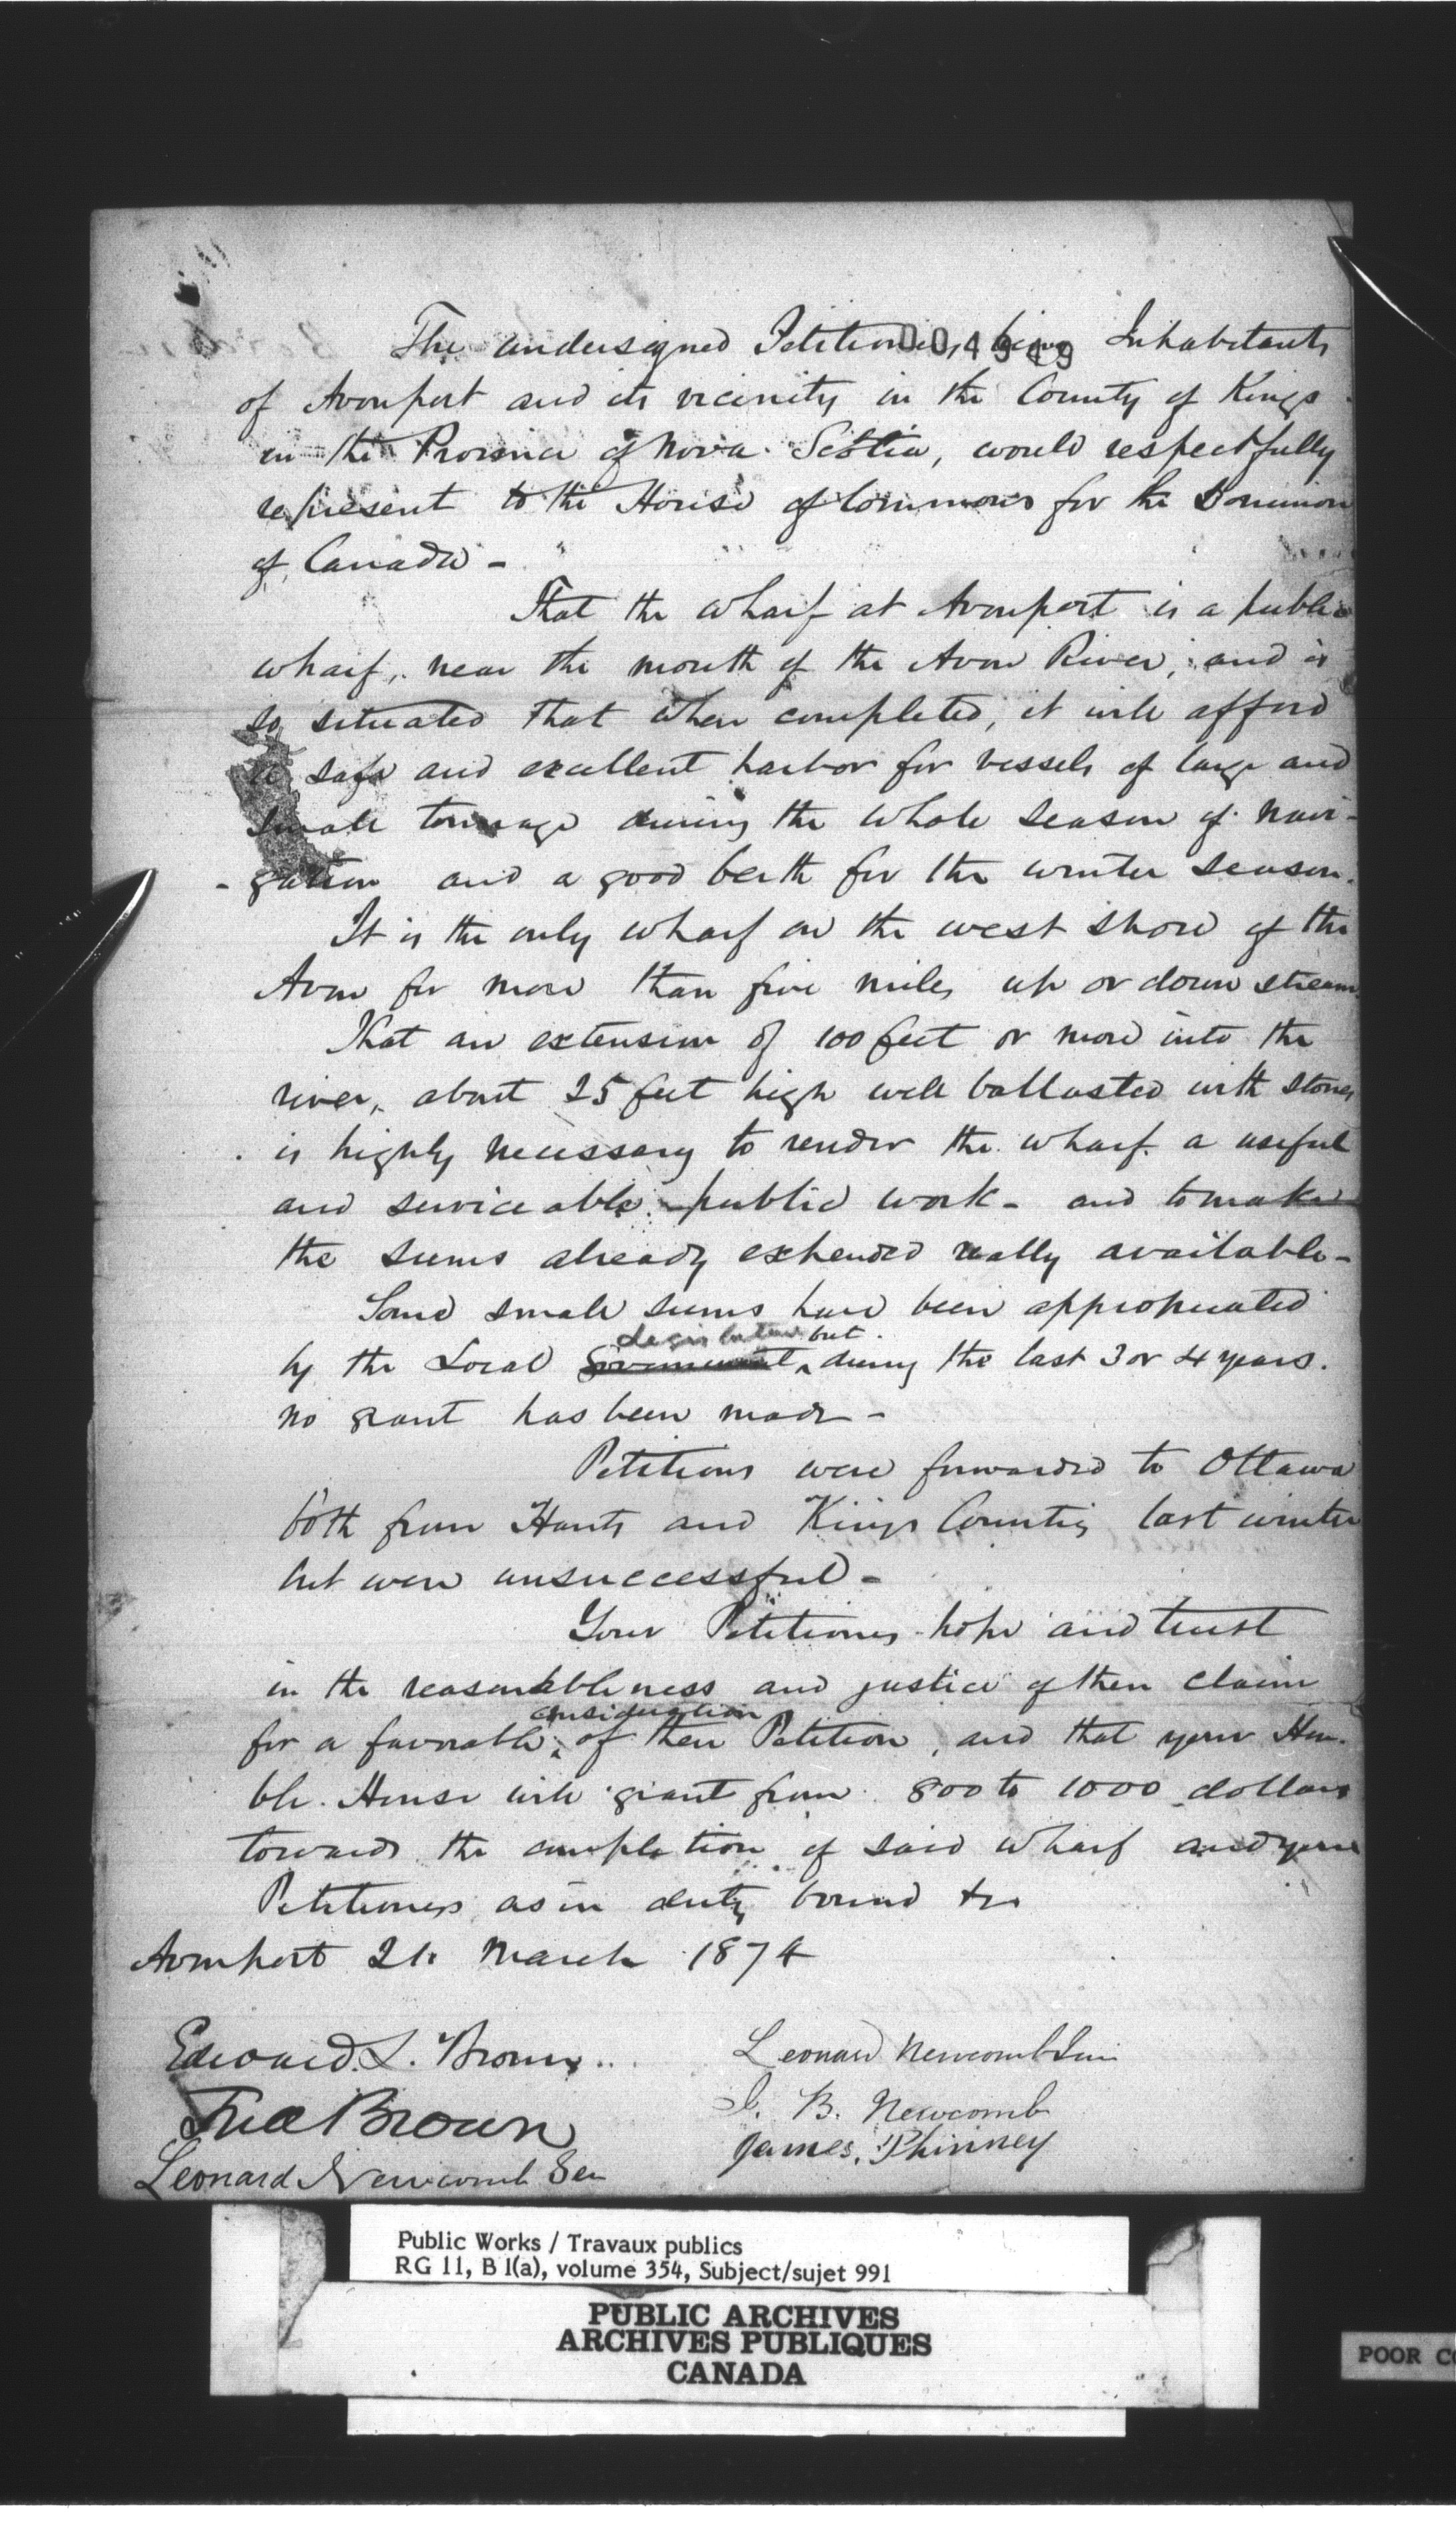 The undersigned Petitioners, being Inhabitants
004949
of Avonport and its vicinity in the County of Kings
in the Province of Nova Scotia, would respectfully
represent to the House of Commons for the Dominion
of Canada -
That the wharf at Avonport is a public
wharf, near the mouth of the Avon River, and is
so situated that when completed, it will afford
a safe and excellent harbor for vessels of large and
small tonnage during the whole season of navi-
-gation and a good berth for the winter season.
It is the only wharf on the west shore of the
Avon for more than five miles up or down stream
That an extension of 100 feet or more into the
river, about 25 feet high well ballasted with stones
is highly necessary to render the wharf a useful
and serviceable public work - and to make
the sums already expended really available -
Some small sums have been appropriated
Legislature but
by the Local Government during the last 3 or 4 years.
no grant has been made -
Petitions were forwarded to Ottawa
both from Hants and Kings Counties last winter
but were unsuccessful -
Your Petitioners hope and trust
in the reasonableness and justice of their claim
consideration
for a favorable of their Petition, and that your Hon-
ble. House will grant from 800 to 1000 dollars
towards the completion of said wharf and your
Petitioners as in duty bound &c
Avonport 21. March 1874
Edward L. Brown
Leonard Newcomb Jun
Fred Brown
J. B. Newcomb
James Phinney
Leonard Newcomb Sen
Public Works / Travaux publics
RG 11, B 1(a), volume 354, Subject/sujet 991
PUBLIC ARCHIVES
ARCHIVES PUBLIQUES
CANADA
POOR